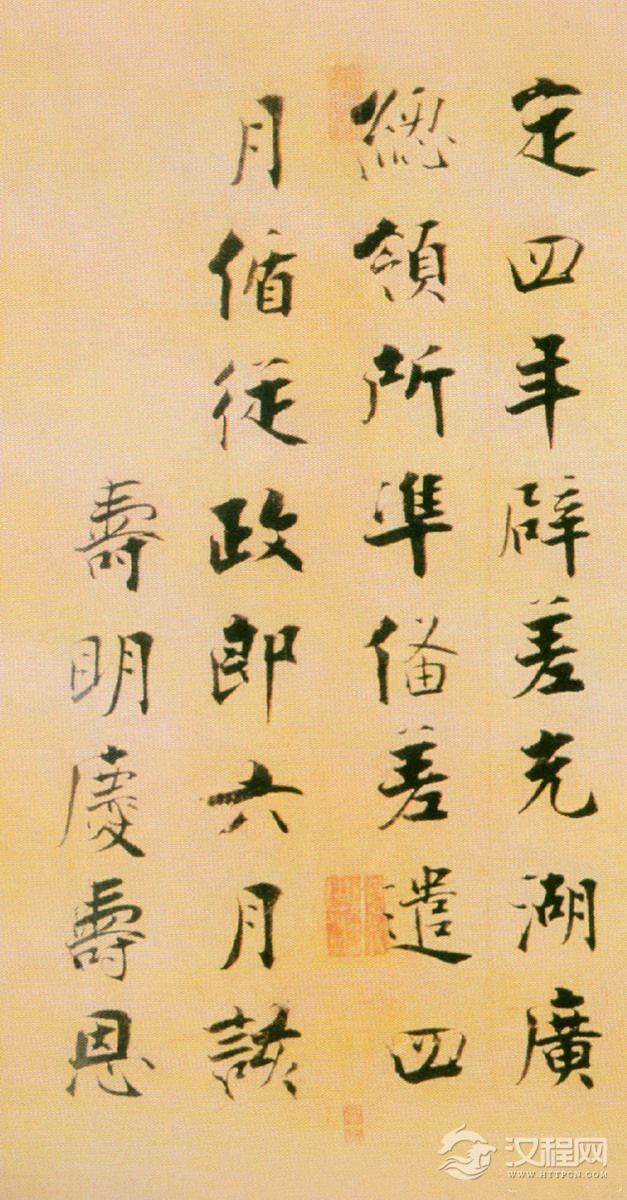 定四年辟差充湖廣
總領所準備差遣四
月循從政郎六月該
壽明慶壽恩
汉程网
WWW.HTTPCN.COM